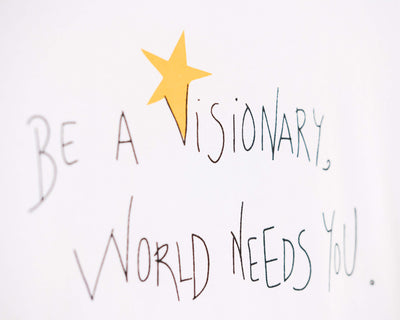 BE A VISIONARY,
WORLD NEEDS YOU.